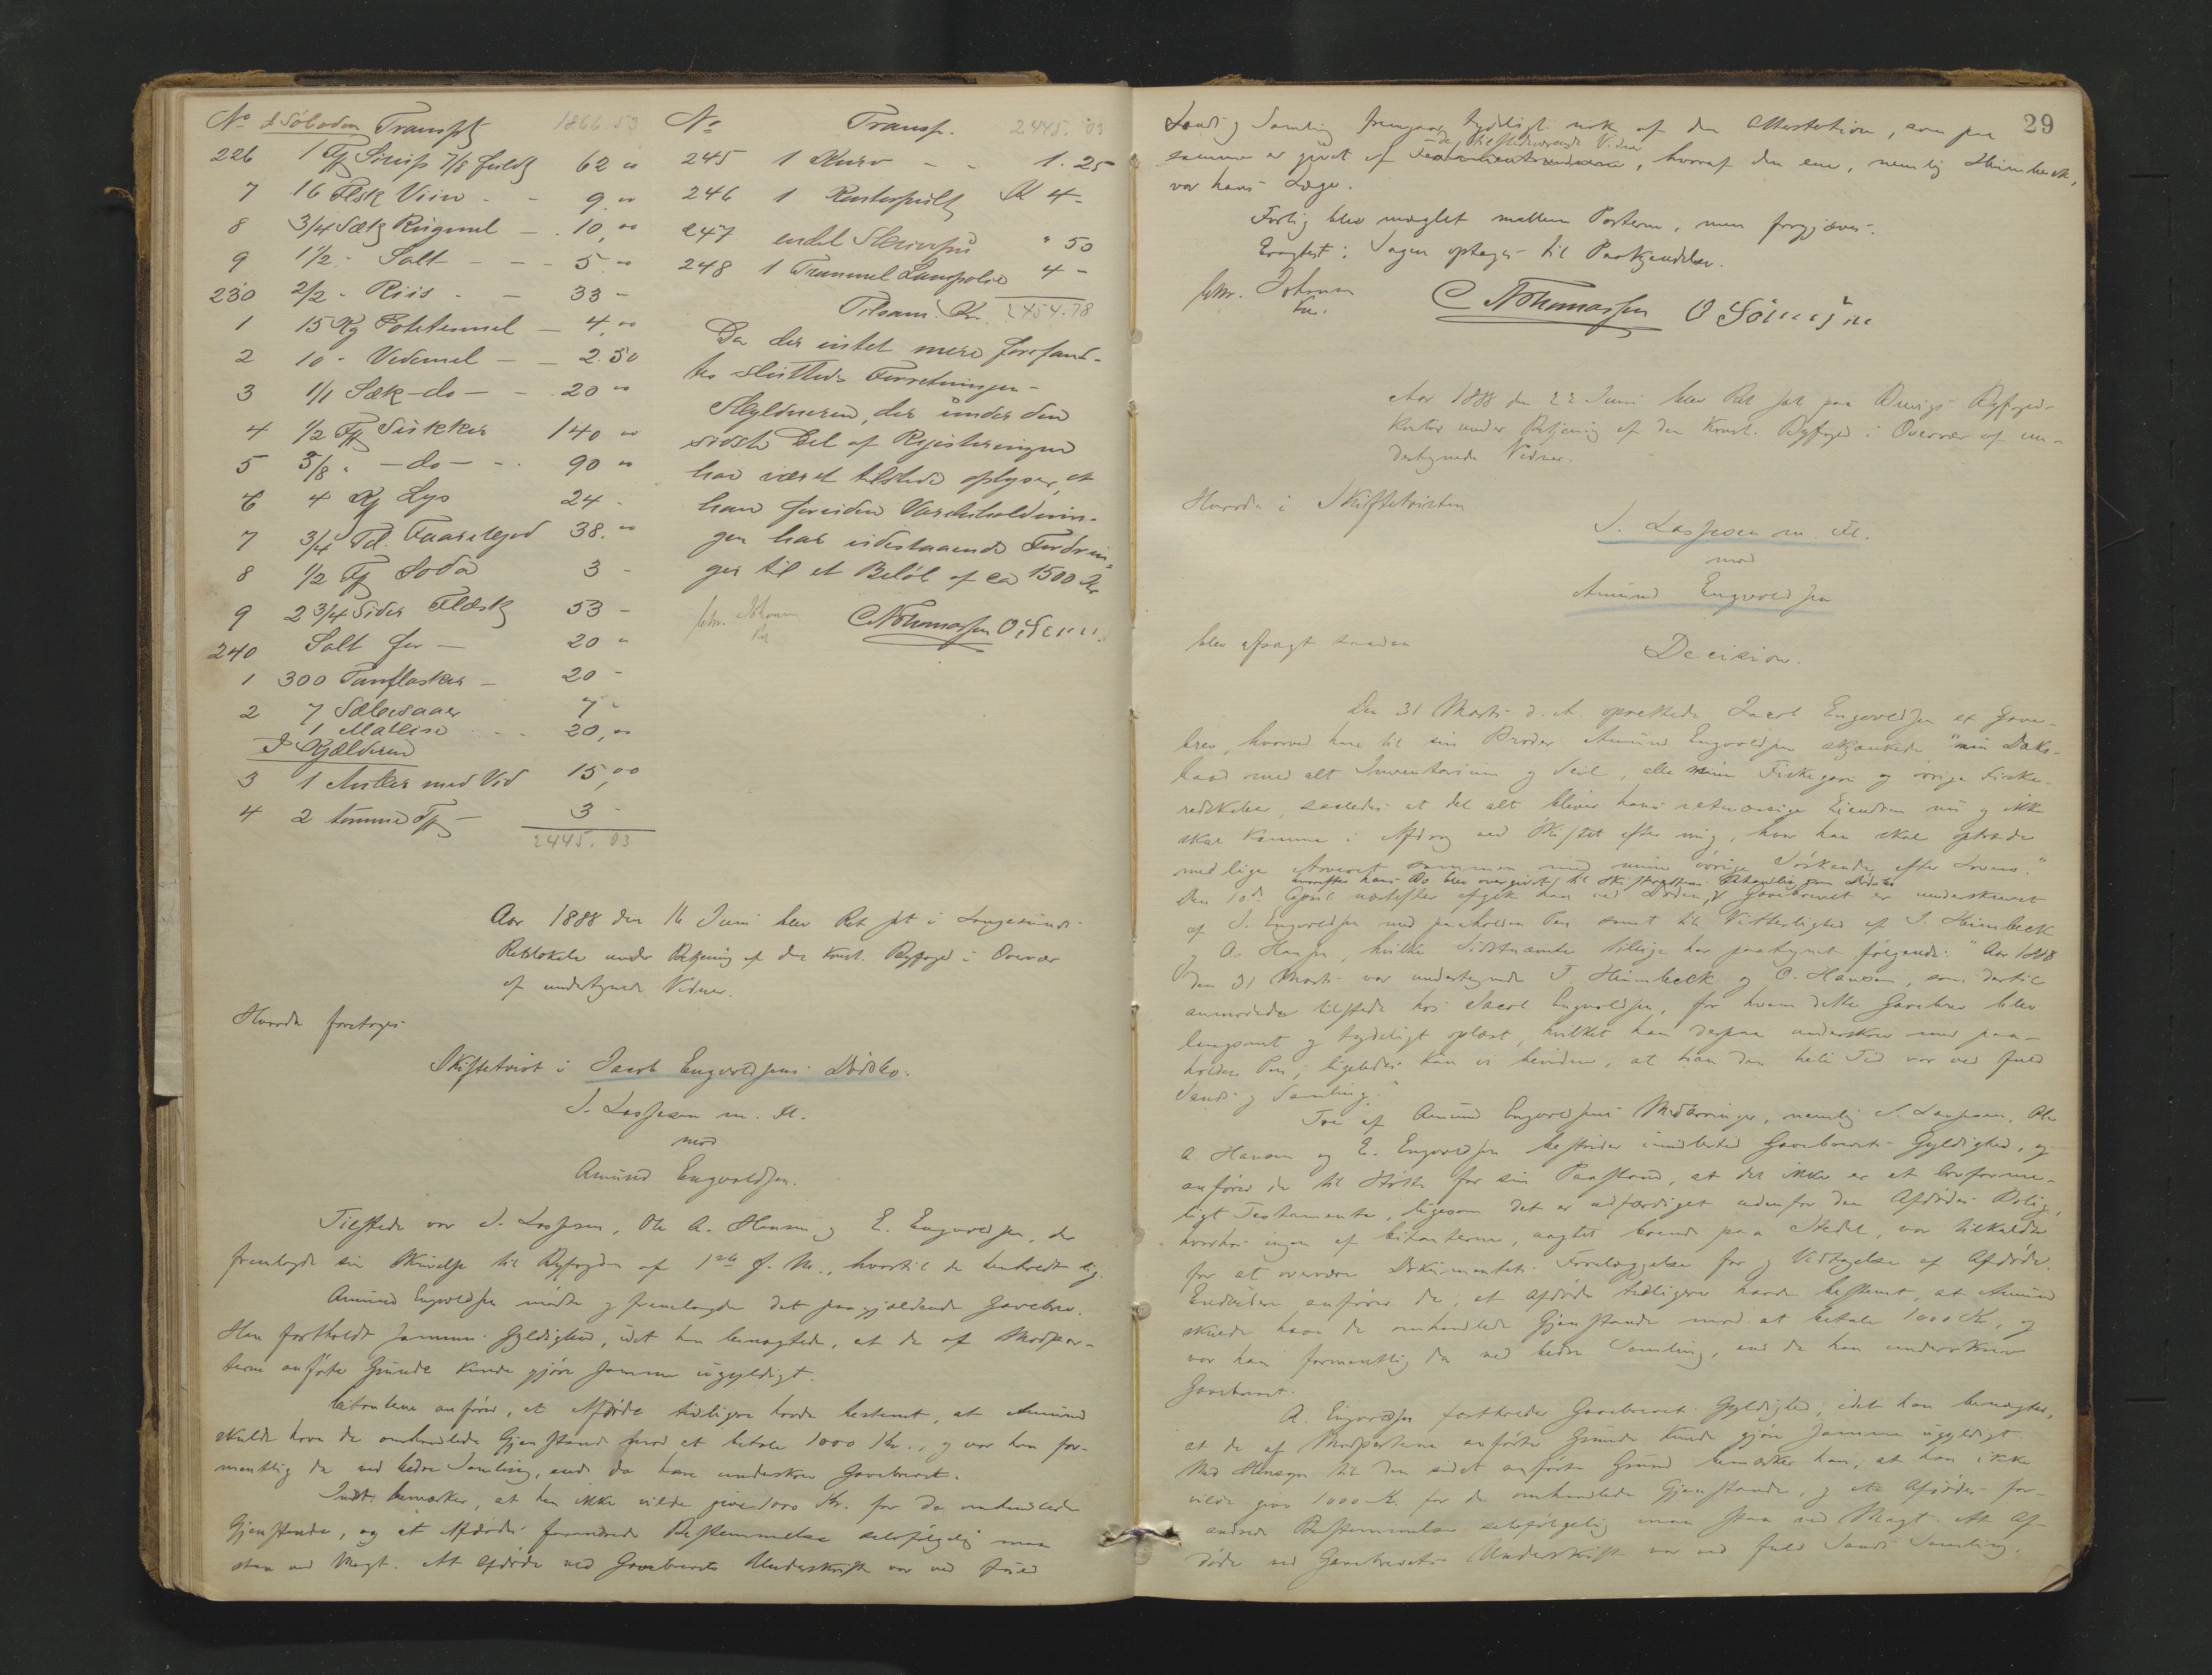 No I Söboden Transpt 1866.53
226 1 Fjg Sirup 7/8 fuldt 62 "
7 16 Flsk Viin - - 9,"
8 3/4 Sæk Rugmel - 10,"
9 1 1/2 - Salt - - - 5 "
230 2/2 - Riis - - 33 -
1 15 Kg Potetesmel - 4,"
2 10 - Vedemel - - 2.50
3 1/1 Sæk - do - - 20 "
4 1/2 Fjg Sukker 140 "
5 5/8 " - do - - 90 "
6 4 Kg Lys 24 -
7 3/4 Td. Faarekjød 38."
8 1/2 Fjg Soda 3 -
9 2 3/4 Sider Flæsk 53 -
240 Salt for - 20 "
1 300 Tomflasker - 20 -
2 7 7 -
1 20,"
I Kjælderen
3 1 Anker med Vid 15,00
4 2 tomme Fjg - 3 -
2445.03
No Transp. 2445.03
245 1 Kurv - - 1.25
246 1 Kr 4 -
247 endel " 50
248 1 Trommel Lampeolie 4 -
Tilsam. Kr. 2454.78
Da der intet mere forefand-
tes sluttedes Forretningen -
Skyldneren, der under den
sidste Del af Registreringen
har været tilstede oplyser, at
han foruden Varebeholdnin-
gen har udestaaende Fordrin-
ger til et Beløb af ca 1500 Kr
Johnsen C Thomassen O
Aar 1888 den 16 Juni blev Ret sat i Langesunds
Retslokale under Betjening af den konst. Byfoged i Overvær
af undertegnede Vidner.
Hvorda foretoges
Skiftetvist i Jacob Engvoldsens Dødsbo.
S. Lassesen m. Fl.
mod
Amund Engvoldsen.
Tilstede var S. Lassesen, Ole A. Hansen og E. Engvoldsen, der
fremlagde sin Skrivelse til Byfogden af 1ste f. M., hvortil de henholdt sig.
Amund Engvoldsen mødte og fremlagde det paagjældende Gavebrev.
Han fastholdt sammes Gyldighed, idet han benægtede, at de af Modpar-
terne anførte Grunde kunde gjöre samme ugyldigt.
Citanterne anförer, at Afdöde tidligere havde bestemt, at Amund
skulde have de omhandlede Gjenstande mod at betale 1000 Kr., og var han for-
mentlig da ved bedre Samling, end da han underskrev Gavebrevet.
Indst. bemærker, at han ikke vilde give 1000 Kr. for de omhandlede
Gjenstande, og at Afdödes forandrede Bestemmelse selvfølgelig maa
staa ved Magt. At Afdöde ved Gavebrevets Underskrift var ved fuld
29
Sands og Samling fremgaar tydeligt nok af den Attestation, som paa
de tilstedeværende Vidner
samme er givet af , hvoraf den ene, nemlig Heimbeck,
var hans Læge.
Forlig blev mæglet mellem Parterne, men forgjæves.
Eragtet: Sagen optages til Paakjendelse.
Johnsen C Thomassen O
Aar 1888 den 22 Juni blev Ret sat paa Brevigs Byfoged-
kontor under Betjening af den konst. Byfoged i Overvær af un-
dertegnede Vidner.
Hvorda i Skiftetvisten
S. Lassesen m. Fl.
mod
Amund Engvoldsen
blev afsagt saadan
Decision.
Den 31 Marts d. A. oprettede Jacob Engvoldsen et Gave-
brev, hvorved han til sin Broder Amund Engvoldsen skjænkede "min Dæks-
baad med alt Inventarium og Seil, alle mine Fiskegarn og övrige Fiske-
redskaber, saaledes at det alt bliver hans retmæssige Eiendom nu og ikke
skal komme i Afdrag ved Skiftet efter mig, hvor han skal optræde
med lige Arveret sammen med mine övrige Söskende efter Loven."
hvorefter hans Bo blev overgivet til Skifterettens Behandling som Dödsbo
Den 10de April næstefter afgik han ved Döden, Gavebrevet er underskrevet
af J. Engvoldsen med paaholden Pen samt til Vitterlighed af J. Heimbeck
og O. Hansen, hvilke Sidstnævnte tillige har paategnet fölgende: "Aar 1888
den 31 Marts var undertegnede J. Heimbeck og O. Hansen, som dertil
anmodede tilstede hos Jacob Engvoldsen, for hvem dette Gavebrev blev
langsomt og tydeligt oplæst, hvilket han derpaa underskrev med paa-
holden Pen; ligeledes kan vi bevidne, at han den hele Tid var ved fuld
Sands og Samling."
Tre af Amund Engvoldsens Medarvinger, nemlig S. Lassesen, Ole
A. Hansen og E. Engvoldsen bestrider imidlertid Gavebrevets Gyldighed, og
anförer de til Stötte for sin Paastand, at det ikke er et lovforme-
ligt Testamente, ligesom det er udfærdiget udenfor den Afdödes Bolig,
hvorhos ingen af Citanterne, uagtet boende paa Stedet, var tilkaldte
for at overvære Dokumentets Forelæggelse for og Vedtagelse af Afdöde.
Endvidere anförer de, at Afdöde tidligere havde bestemt, at Amund
skulde have de omhandlede Gjenstande mod at betale 1000 Kr., og
var han formentlig da ved bedre Samling, end da han underskrev
Gavebrevet.
A. Engvoldsen fastholder Gavebrevets Gyldighed, idet han benægter,
at de af Modparterne anførte Grunde kunde gjøre samme ugyldigt.
Med Hensyn til den sidst anførte Grund bemærker han, at han ikke
vilde give 1000 Kr. for de omhandlede Gjenstande, og at Afdödes for-
andrede Bestemmelse selvfølgelig maa staa ved Magt. At Af-
döde ved Gavebrevets Underskrift var ved fuld Sands Samling,